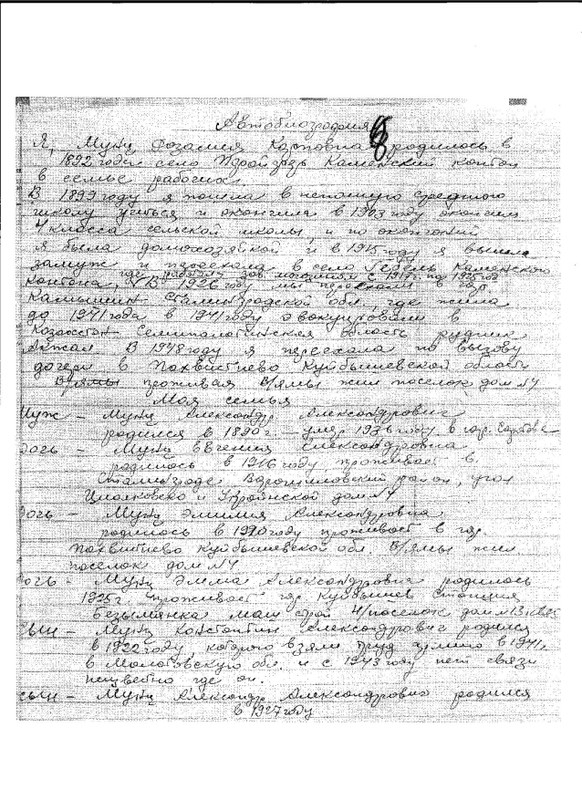 Автобиография
Я, Мунц Розалия Карповна родилось в
1892 году село Град Каменский контон
в семье рабочих
В 1899 году я пошла в неполную среднюю
школу учиться и окончила в 1903 году окончила
4 класса сельской школы, и по окончании
я была домохозяйкой и в 1915 году я вышла
замуж и проехала в село Каменского
где работал зав. магазином с 1917 г. по 1925 год
контона, В 1926 году мы переехали в гор.
Камышин Сталинградской обл. где жила
до 1941 года в 1941 году эвокуировали в
Козахстон Семипалатинская область рудник
Акжал В 1948 году я переехала по вызову
дочери в Похвистнево Куйбышевской области
В/ямы проживая В/ямы жил поселок дом N4
Моя семья
Муж – Мунц Александр Александрович
родился в 1890 г. – умер 1936 году в гор. Саратове
Дочь – Мунц Евгения Александровна
родилось в 1916 году проживает в
Сталинграде Ворошиловский район, угол
Циолковско и Украинской дом N4
Дочь – Мунц Эмилия Александровна
родилось в 1920 году проживает в гор.
Похвистнево Куйбышевской обл. В/ямы жил
поселок дом N4
Дочь – Мунц Эмма Александровна родилось
1925 г. проживает гор Куйбышев станция
Безымянка маш строй 4/поселок дом N13
Сын – Мунц Константин Александрович родился
в 1922 году, которого взяли труд армию в 1941 г.
в Молотовскую обл. и с 1943 году нет связи
неизвестно где он.
Сын – Мунц Александр Александрович родился
в 1927 году